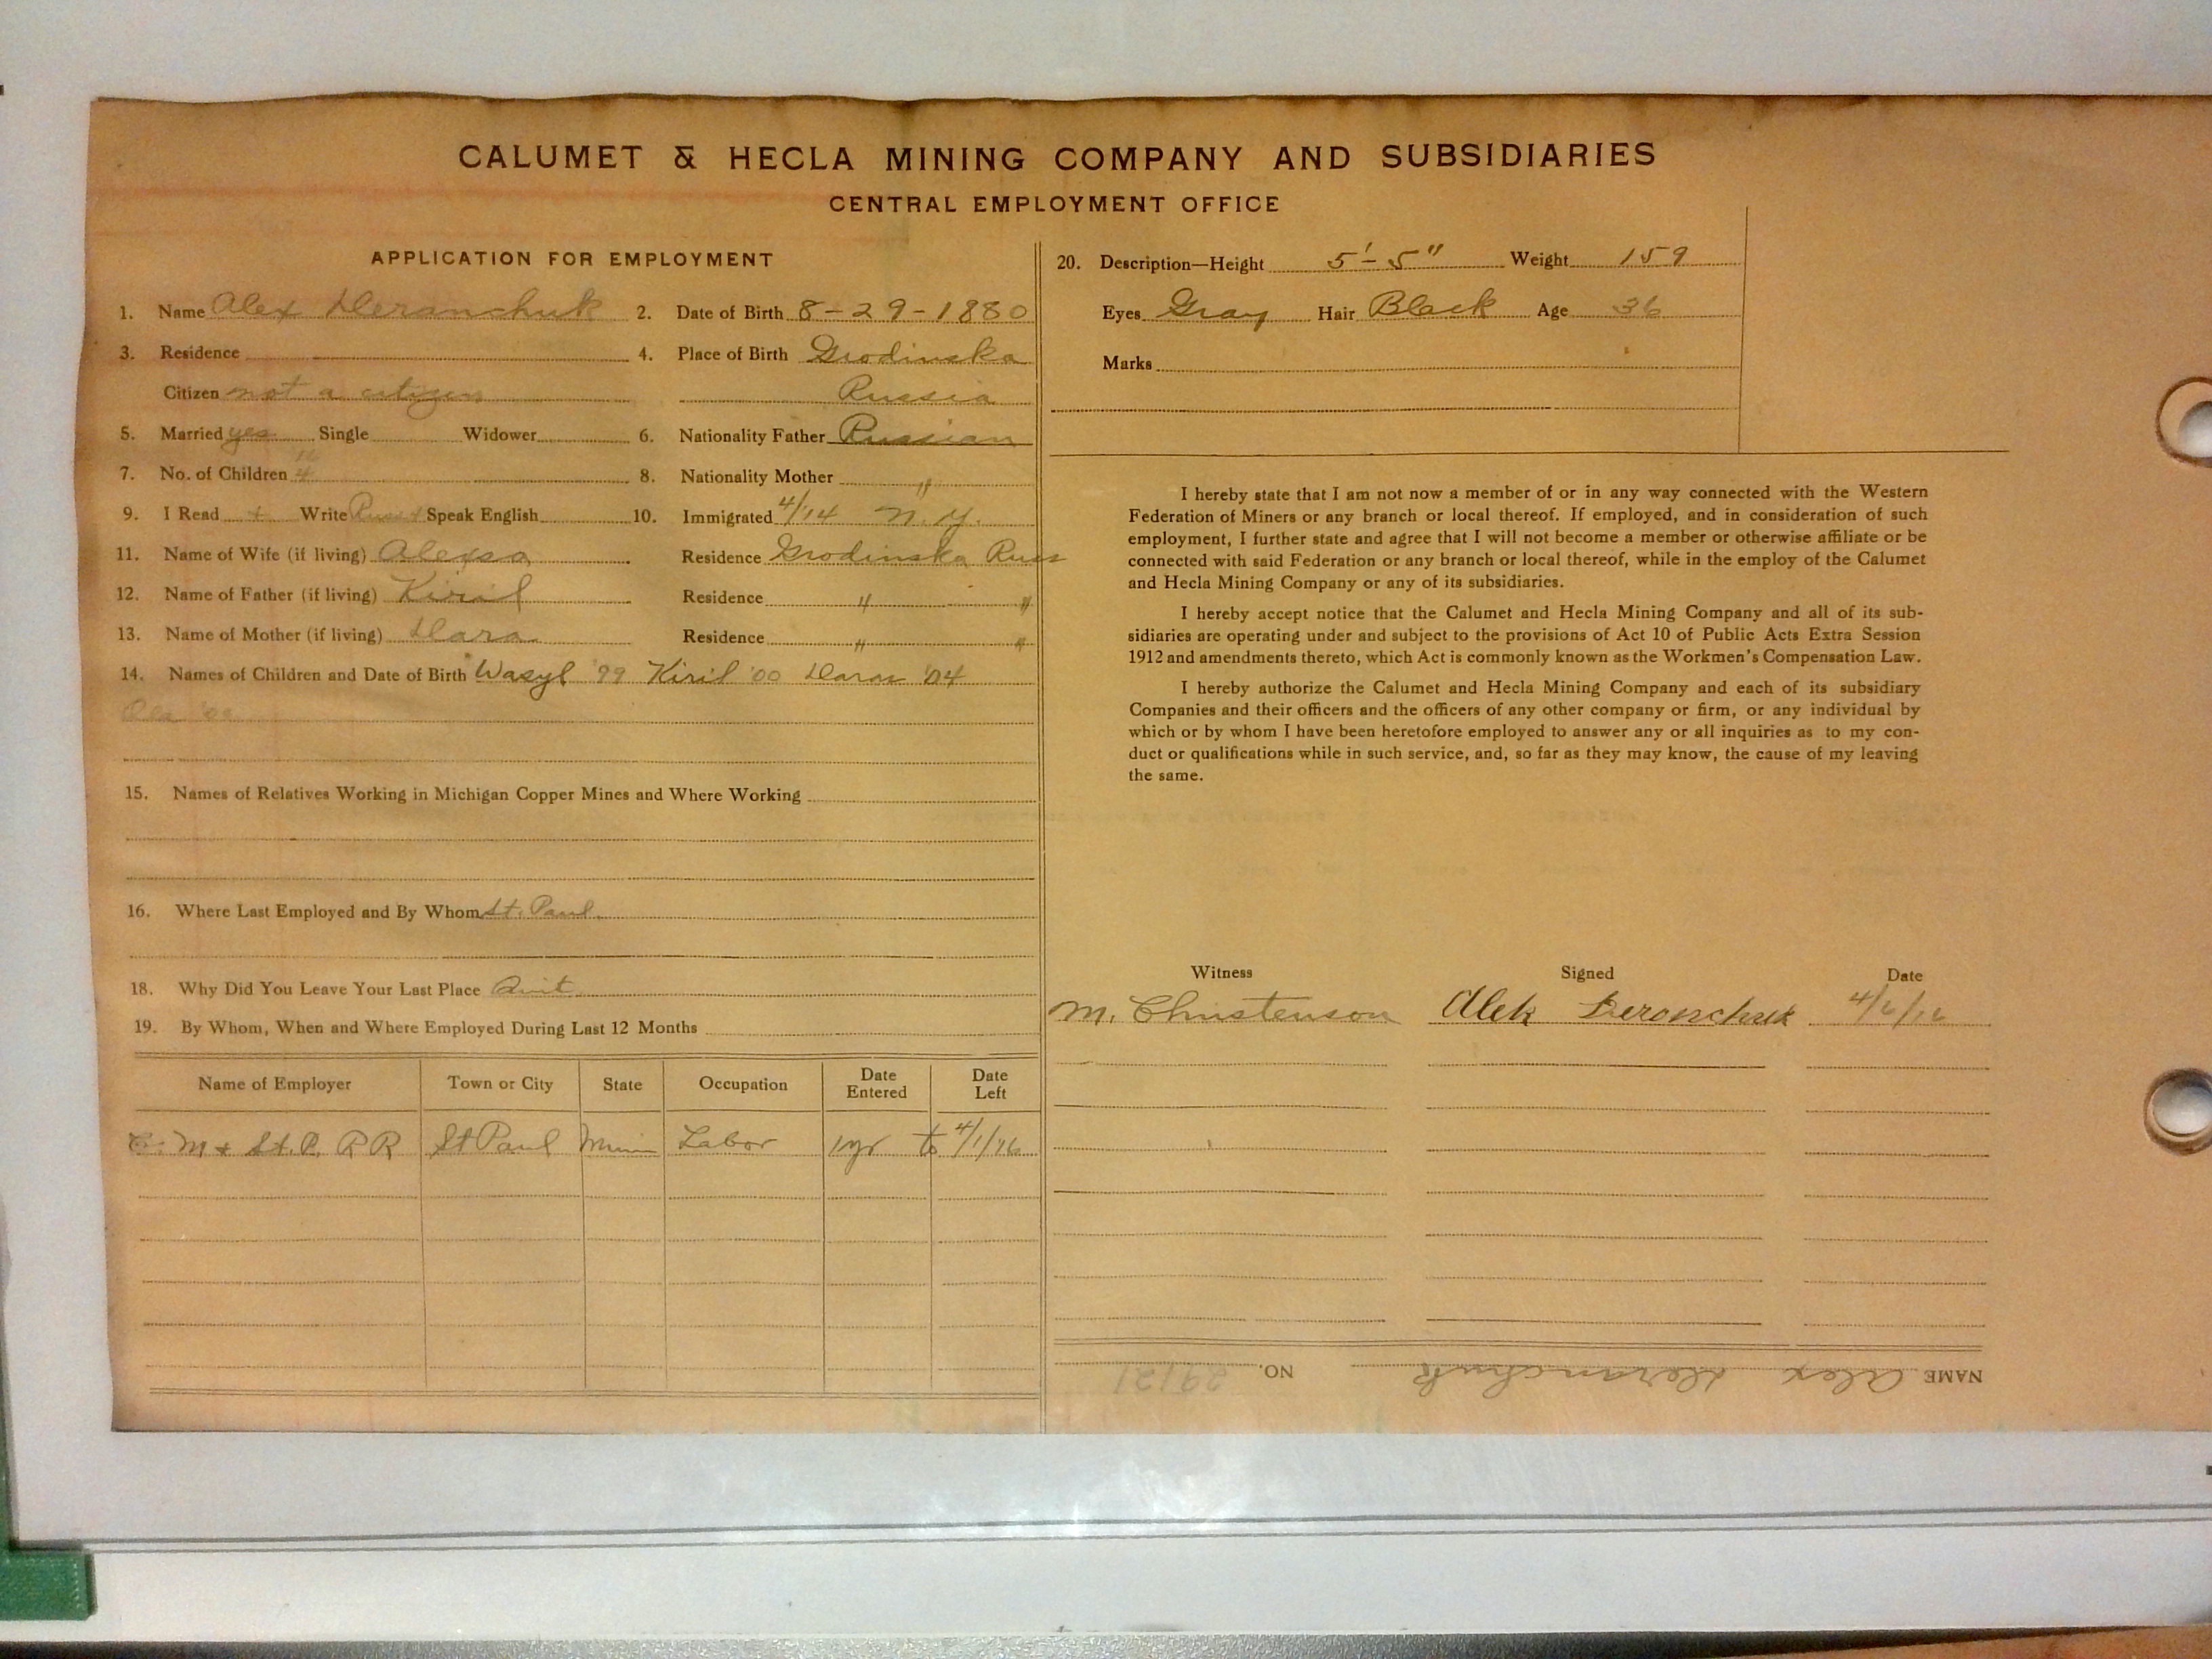 CALUMET & HECLA MINING COMPANY AND SUBSIDIARIES
CENTRAL EMPLOYMENT OFFICE
APPLICATION FOR EMPLOYMENT
1. Name Alex Deranchuk 2. Date of Birth 8-29-1880
3. Residence 4. Place of Birth Grodinska
Citizen not a citizen Russia
5. Married yes Single Widower 6. Nationality Father Russian
7. No. of Children 4 8. Nationality Mother "
9. I Read + Write Russ Speak English 10. Immigrated 4/14 N.Y.
11. Name of Wife (if living) Alexsa Residence Grodinska Russ
12. Name of Father (if living) Kiril Residence " "
13. Name of Mother (if living) Dara Residence " "
14. Names of Children and Date of Birth Wasyl '99 Kiril '00 '04
15. Names of Relatives Working in Michigan Copper Mines and Where Working
16. Where Last Employed and By Whom St. Paul.
18. Why Did You Leave Your Last Place Quit
19. By Whom, When and Where Employed During Last 12 Months
Name of Employer Town or City State Occupation Date Entered Date Left
C. M + St. P. R R St Paul Minn Labor 1 yr to 4/1/16
20. Description—Height 5'-5" Weight 159
Eyes Gray Hair Black Age 36
Marks
I hereby state that I am not now a member of or in any way connected with the Western
Federation of Miners or any branch or local thereof. If employed, and in consideration of such
employment, I further state and agree that I will not become a member or otherwise affiliate or be
connected with said Federation or any branch or local thereof, while in the employ of the Calumet
and Hecla Mining Company or any of its subsidiaries.
I hereby accept notice that the Calumet and Hecla Mining Company and all of its sub-
sidiaries are operating under and subject to the provisions of Act 10 of Public Acts Extra Session
1912 and amendments thereto, which Act is commonly known as the Workmen's Compensation Law.
I hereby authorize the Calumet and Hecla Mining Company and each of its subsidiary
Companies and their officers and the officers of any other company or firm, or any individual by
which or by whom I have been heretofore employed to answer any or all inquiries as to my con-
duct or qualifications while in such service, and, so far as they may know, the cause of my leaving
the same.
Witness Signed Date
M. Christenson Alek Deronchuk 4/6/16
NAME Alex Deranchuk NO. 29121